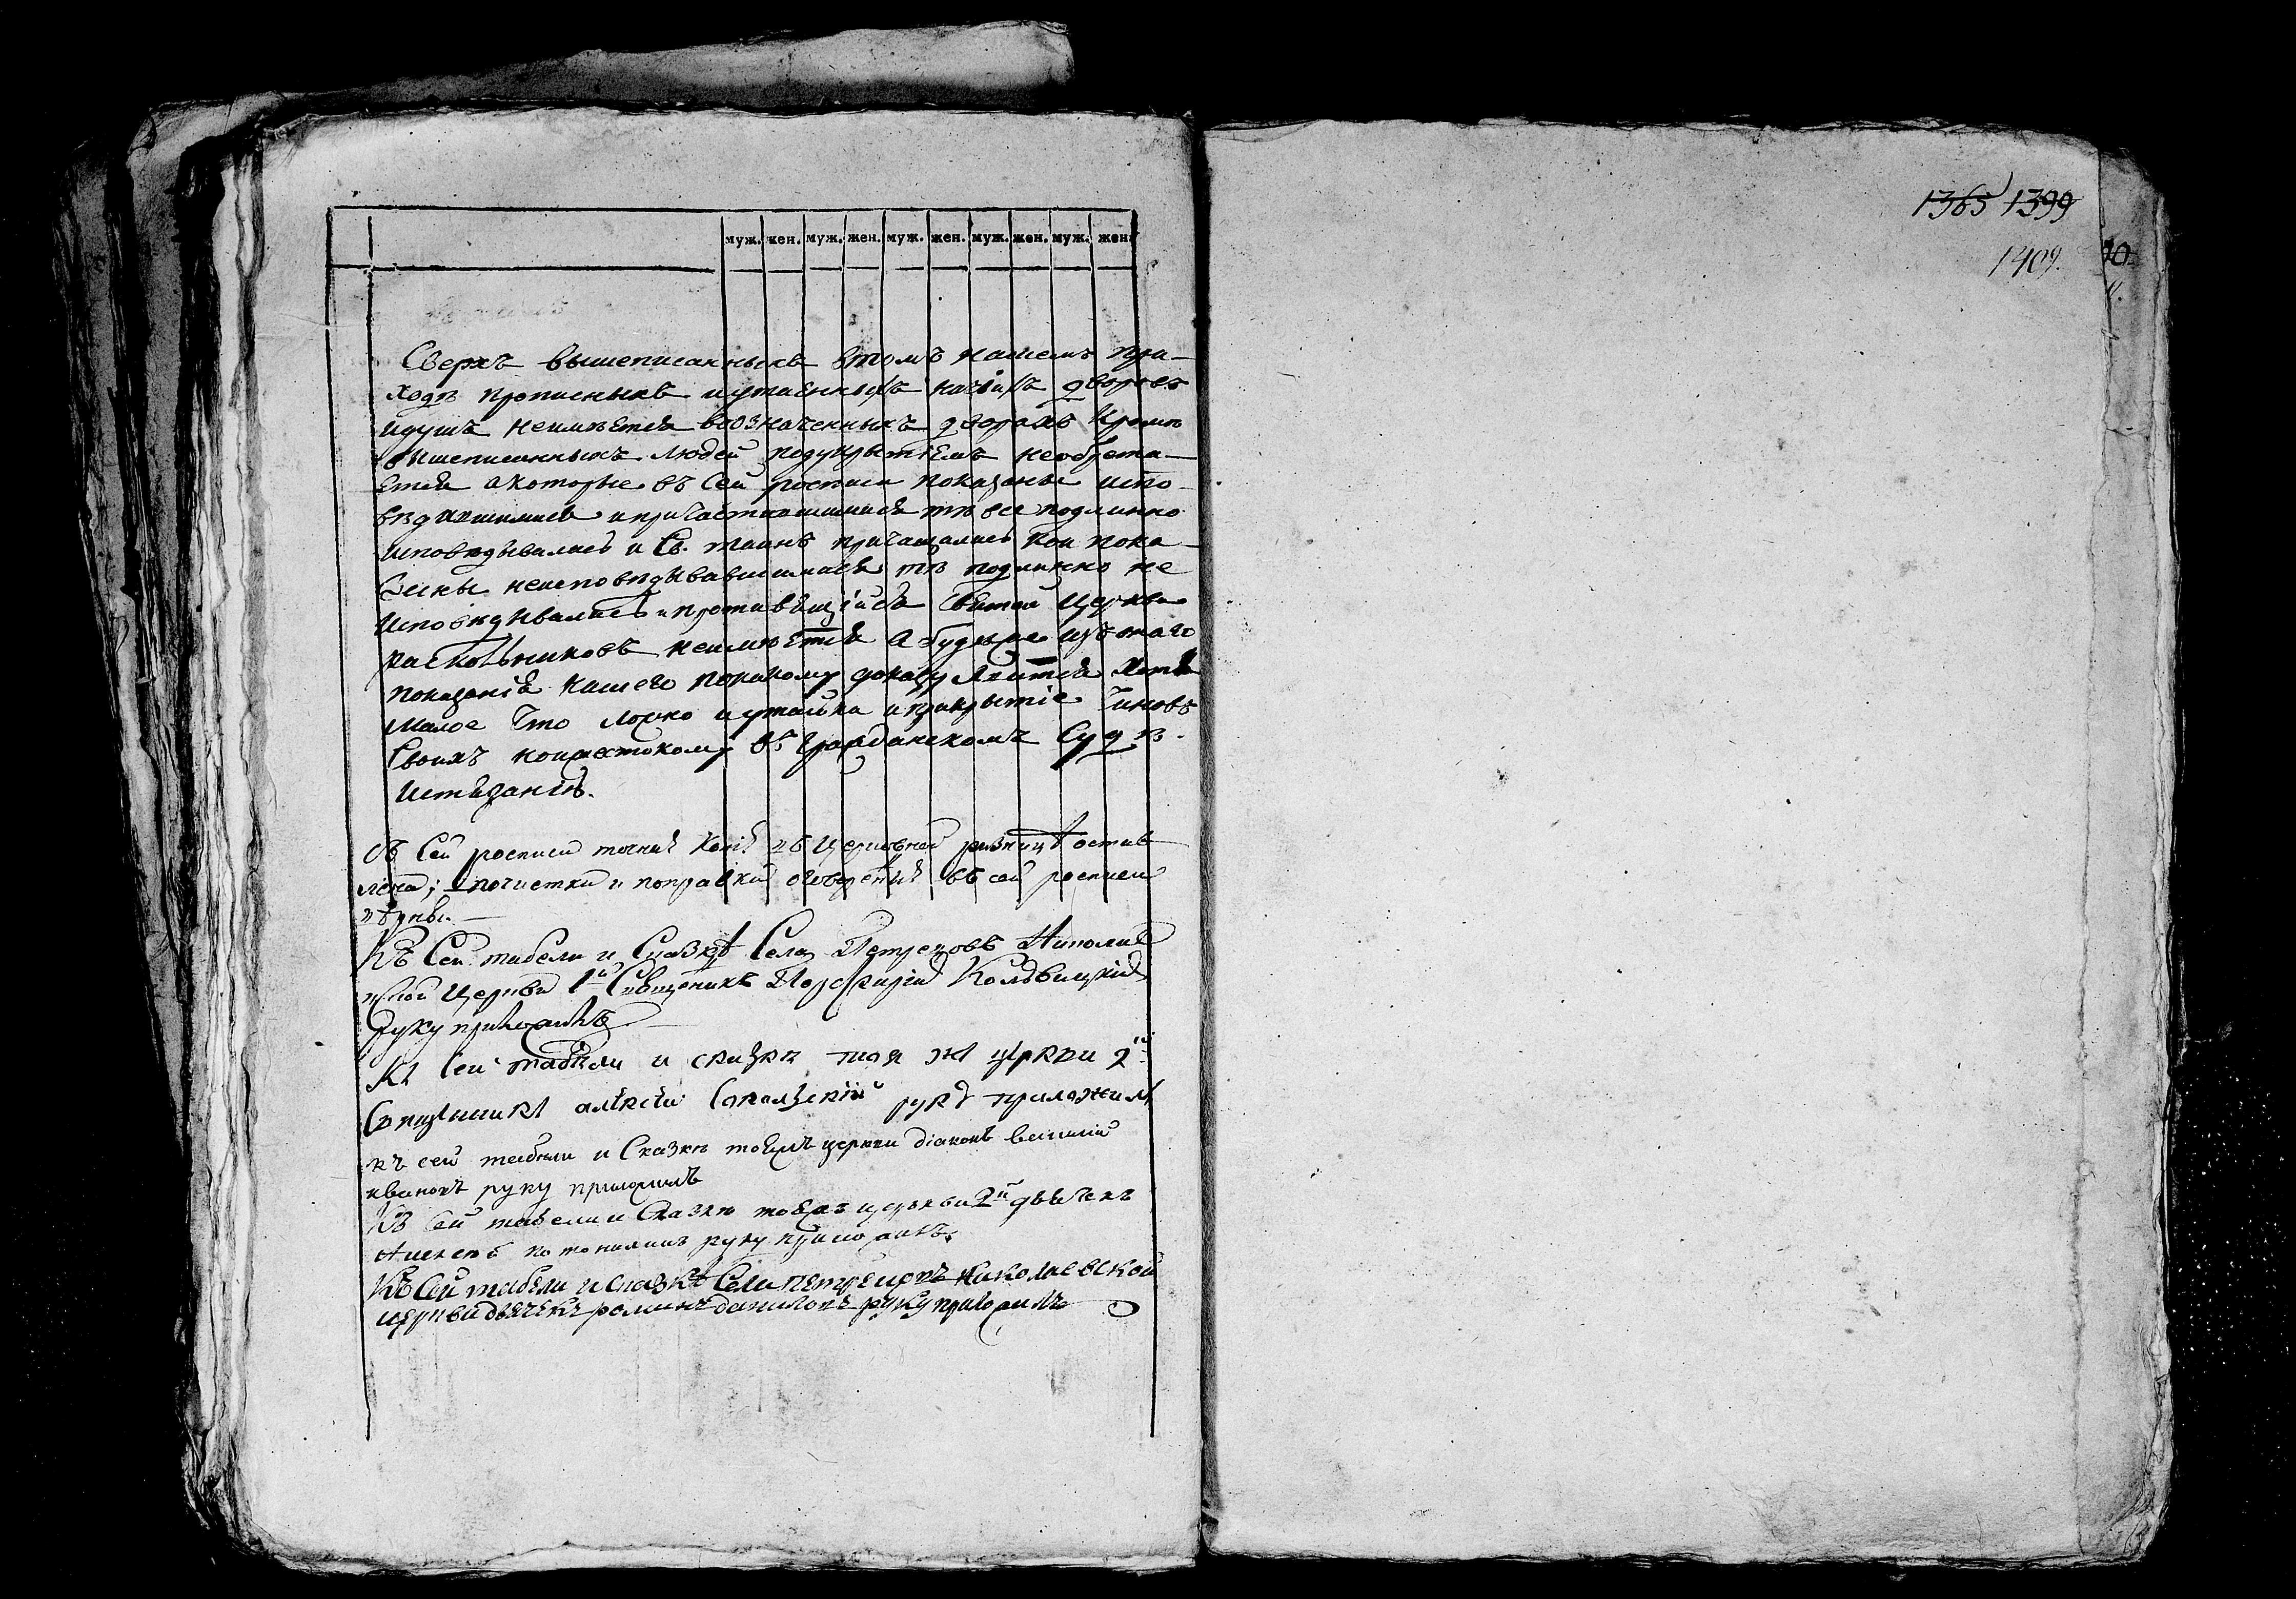 муж. жен. муж. жен. муж. жен. муж. жен. муж. жен.
Сверхъ вышеписанныхъ втомъ нашемъ при-
ходѣ прописныхъ иутаенныхъ ничіихъ дворовъ
идушъ неимѣется вобзначенныхъ дворахъ кромѣ
вышеписанныхъ людей подукрытіемъ необрета-
ется акоторые въ сей росписи показаны испо-
вѣдавшимися ипричастившимися тѣ все подлинно
исповѣдывались и Св. таинъ причащались кои пока-
заны неисповѣдывавшимися тѣ подлинно не
исповѣдывались ипротивящійся Святой церкви
раскольниковъ неимѣется абудеже изъ того
показанія нашего покакому доказу явится хотя
малое что ложно иутайка иприкрытіе чиновъ
своихъ кожестокому въ гражданскомъ судѣ.
истязаніѣ.
Съ сей росписи точная копія въ церковной ризницѣ остав-
лена; почистки и поправки въ сей росписи
вѣрны.
Къ сей табели и сказкѣ села Петрецовъ Николае
вской церкви 1й священникъ Порфирій Колдвицкій
руку приложилъ
Къ сей табели и сказки тоя жъ церкви 2й
священникъ алексѣй руку приложилъ
къ сей табели и сказки тояжъ церкви діаконъ василій
ивановъ руку приложилъ
Къ сей табели и сказкѣ тояжъ церкви 2й дьячекъ
Алексѣй руку приложилъ.
Къ сей табели и сказкѣ села петрецовъ николаевской
церкви дьячекъ романъ даниловъ руку приложилъ
1365 1399
1409.
10